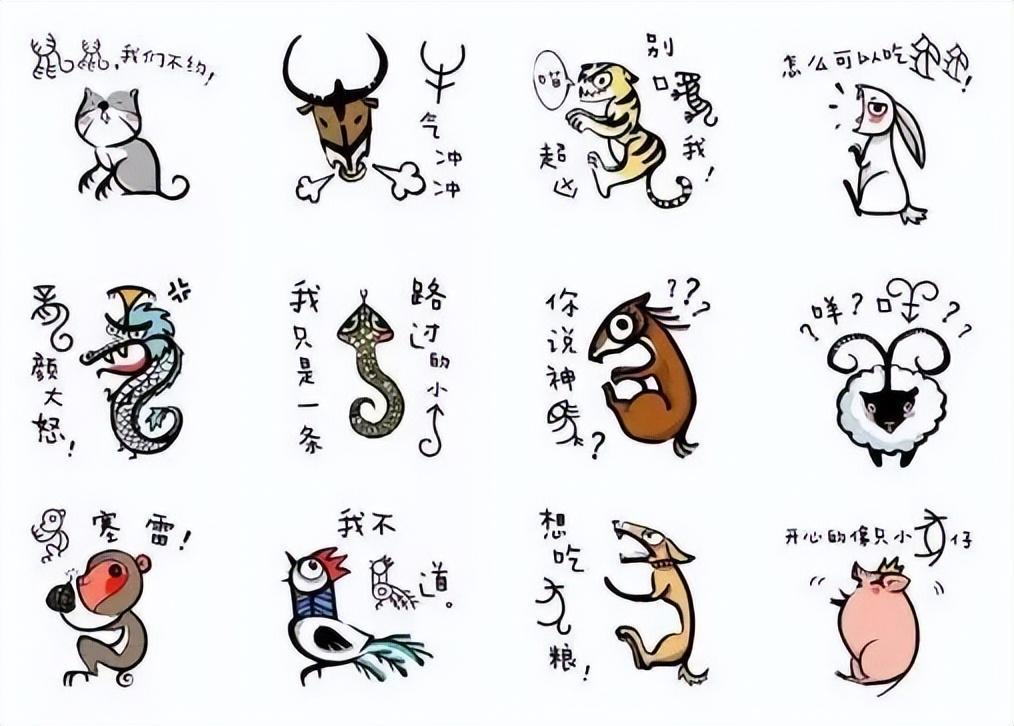 鼠鼠,我们不约!
牛气冲冲
喵
超凶
别唬我!
怎么可以吃兔兔!
龙颜大怒!
我只是一条
路过的小蛇
你说神马?
???
?咩?咩??
猴塞雷!
我不
鸡道。
想吃
犬粮!
开心的像只小豕仔